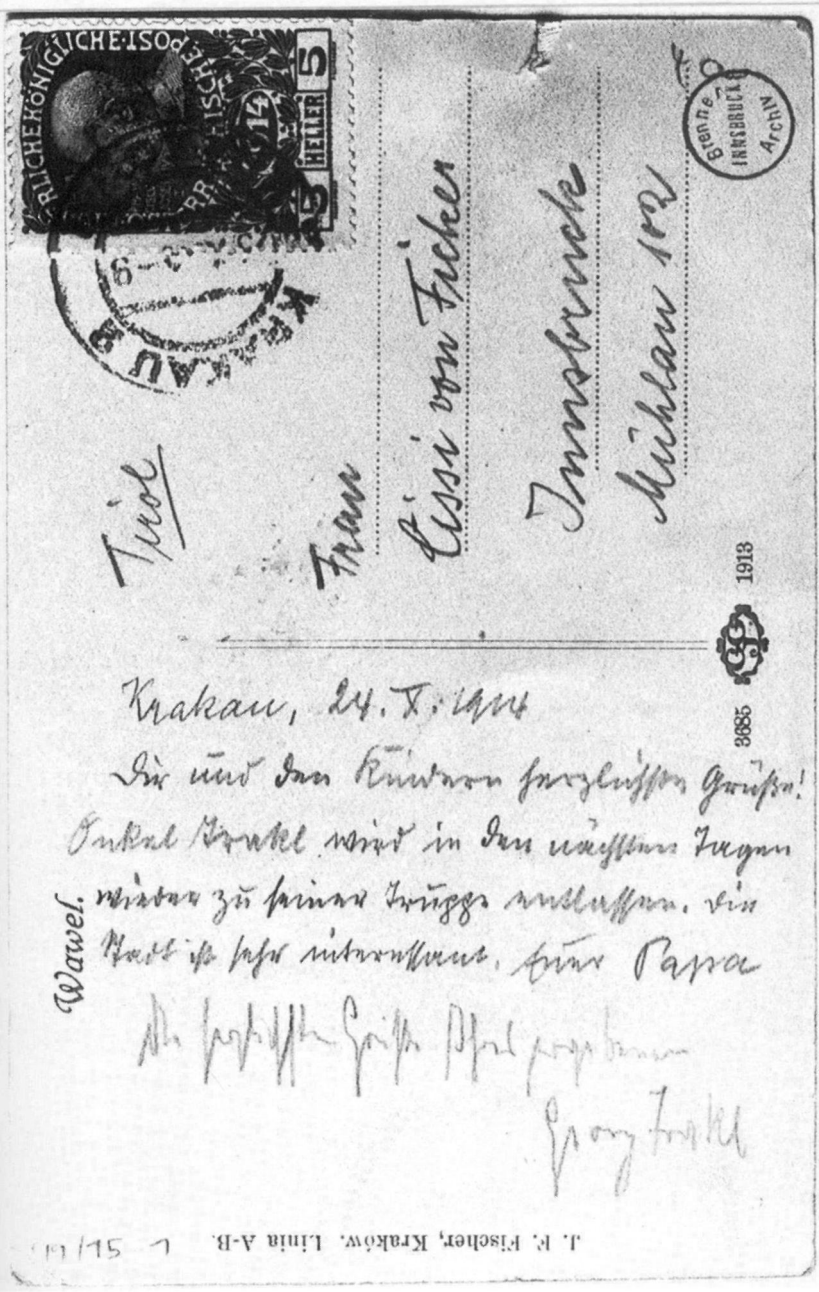 5 HELLER 5
1914
KRAKAU 2
Brenner
INNSBRUCK
Archiv
Tirol
Frau
Cissi von Ficker
Innsbruck
Mühlau 102
3685 1913
Krakau, 24. X. 1914
Dir und den Kindern herzlichste Grüße!
Onkel Trakl wird in den nächsten Tagen
wieder zu seiner Truppe entlassen. Die
Stadt ist sehr interessant. Euer Papa
Die herzlichsten Grüße Ihres ergebenen
Georg Trakl
Wawel.
J. F. Fischer, Kraków. Linia A-B.